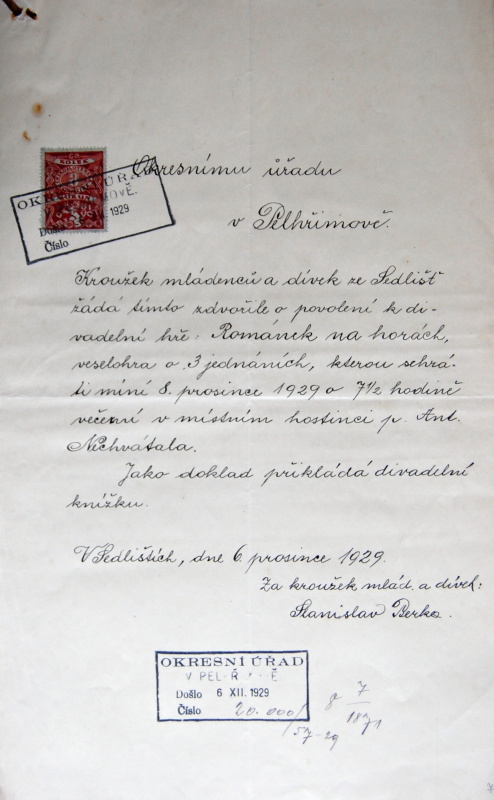 KOLEK
Okresnímu úřadu
OKRESNÍ ÚŘAD
1929
Číslo
v Pelhřimově.
Kroužek mládenců a dívek ze Sedlišť
žádá tímto zdvořile o povolení k di-
vadelní hře: Románek na horách,
veselohra o 3 jednáních, kterou sehrá-
ti míní 8. prosince 1929 o 7 1/2 hodině
večerní v místním hostinci p. Ant.
Nechvátala.
Jako doklad přikládá divadelní
knížku.
V Sedlištích, dne 6. prosince 1929.
Za kroužek mlád. a dívek:
Stanislav
OKRESNÍ ÚŘAD
V PELHŘIMOVĚ
Došlo 6 XII. 1929
Číslo 20.000/
57-29
7
1871